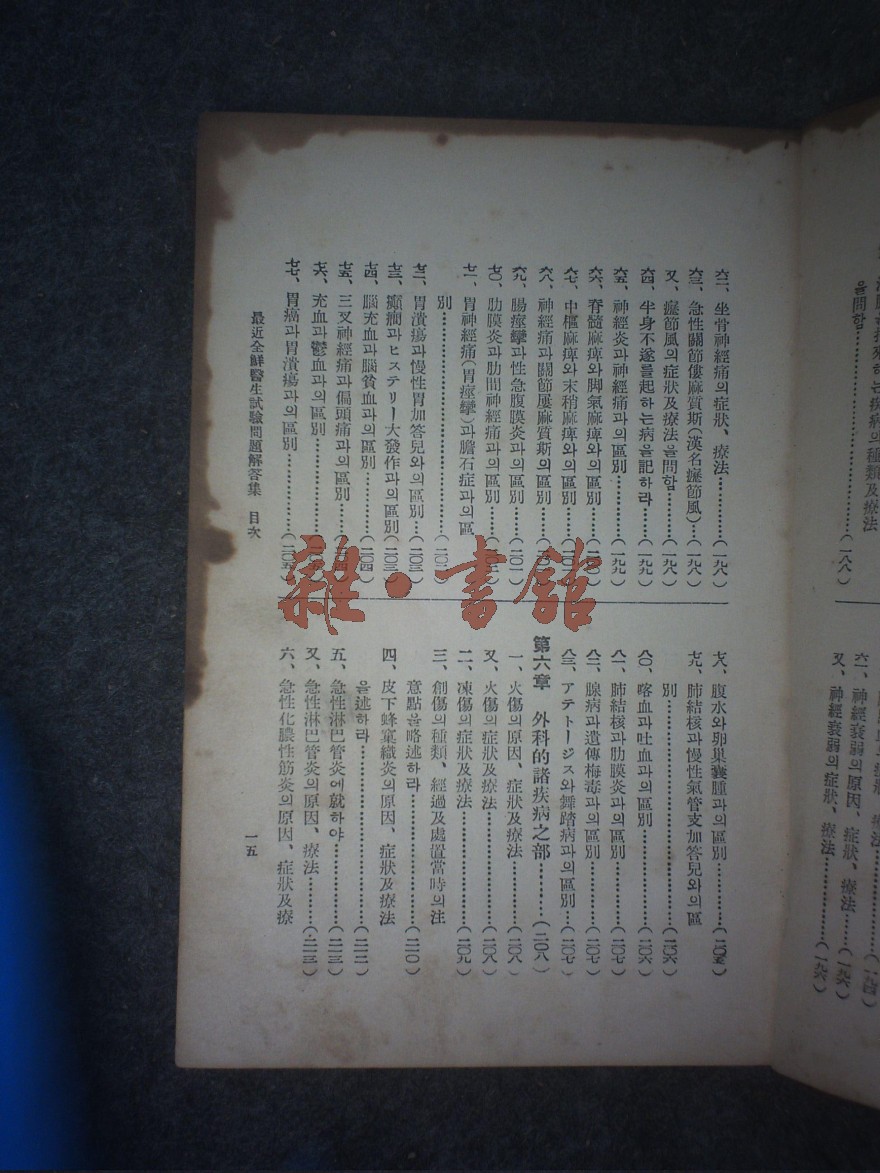 을問함…………………(一八八)
六一、神經衰弱의原因、症狀、療法…………(一九四)
又、神經衰弱의症狀、療法…………(一九六)
六二、坐骨神經痛의症狀、療法…………(一九八)
六三、急性關節僂麻質斯(漢名癧節風)…(一九八)
又、癧節風의症狀及療法을問함………(一九八)
六四、半身不遂를起하는病을記하라……(一九九)
六五、神經炎과神經痛과의區別…………(一九九)
六六、脊髓麻痺와脚氣麻痺와의區別……(二〇〇)
六七、中樞麻痺와末稍麻痺와의區別
六八、神經痛과關節僂麻質斯의區別
六九、腸痙攣과性急腹膜炎과의區別……(二〇一)
七〇、肋膜炎과肋間神經痛과의區別
七一、胃神經痛(胃痙攣)과膽石症과의區
別…………………
七二、胃潰瘍과慢性胃加答兒와의區別…(二〇三)
七三、癲癎과ヒステリー大發作과의區別(二〇三)
七四、腦充血과腦貧血과의區別…………(二〇四)
七五、三叉神經痛과偏頭痛과의區別……(二〇四)
七六、充血과鬱血과의區別………………
七七、胃癌과胃潰瘍과의區別……………(二〇五)
七八、腹水와卵巢囊腫과의區別…………(二〇五)
七九、肺結核과慢性氣管支加答兒와의區
別…………………(二〇六)
八〇、喀血과吐血과의區別………………(二〇六)
八一、肺結核과肋膜炎과의區別…………(二〇七)
八二、腺病과遺傳梅毒과의區別…………(二〇七)
八三、アテトージス와舞踏病과의區別…(二〇七)
第六章 外科的諸疾病之部………(二〇八)
一、火傷의原因、症狀及療法……………(二〇八)
又、火傷의症狀及療法……………………(二〇八)
二、凍傷의症狀及療法……………………(二〇九)
三、創傷의種類、經過及處置當時의注
意點을略述하라…………………(二一〇)
四、皮下蜂窠織炎의原因、症狀及療法
을述하라…………………(二一二)
五、急性淋巴管炎에就하야………………(二一三)
又、急性淋巴管炎의原因、療法…………(二一三)
六、急性化膿性筋炎의原因、症狀及療
最近全鮮醫生試驗問題解答集 目次
一五
雜·書館